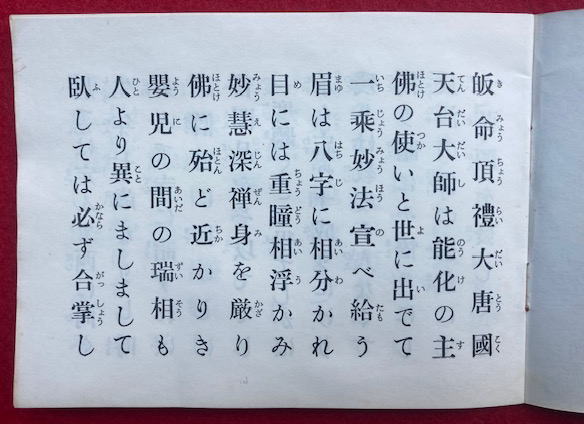 皈命頂禮大唐國
天台大師は能化の主
佛の使いと世に出でて
一乘妙法宣べ給う
眉は八字に相分かれ
目には重瞳相浮かみ
妙慧深禅身を厳り
佛に殆ど近かりき
嬰児の間の瑞相も
人より異にましまして
臥しては必ず合掌し